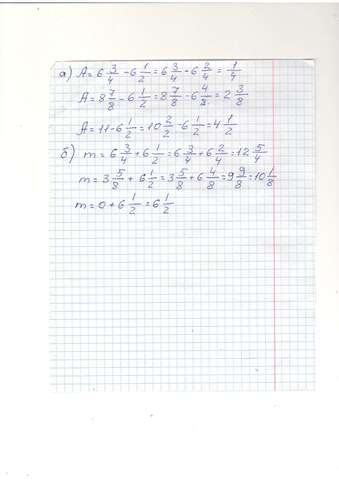 а) A = 6 3/4 - 6 1/2 = 6 3/4 - 6 2/4 = 1/4
A = 8 7/8 - 6 1/2 = 8 7/8 - 6 4/8 = 2 3/8
A = 11 - 6 1/2 = 10 2/2 - 6 1/2 = 4 1/2
б) m = 6 3/4 + 6 1/2 = 6 3/4 + 6 2/4 = 12 5/4
m = 3 5/8 + 6 1/2 = 3 5/8 + 6 4/8 = 9 9/8 = 10 1/8
m = 0 + 6 1/2 = 6 1/2